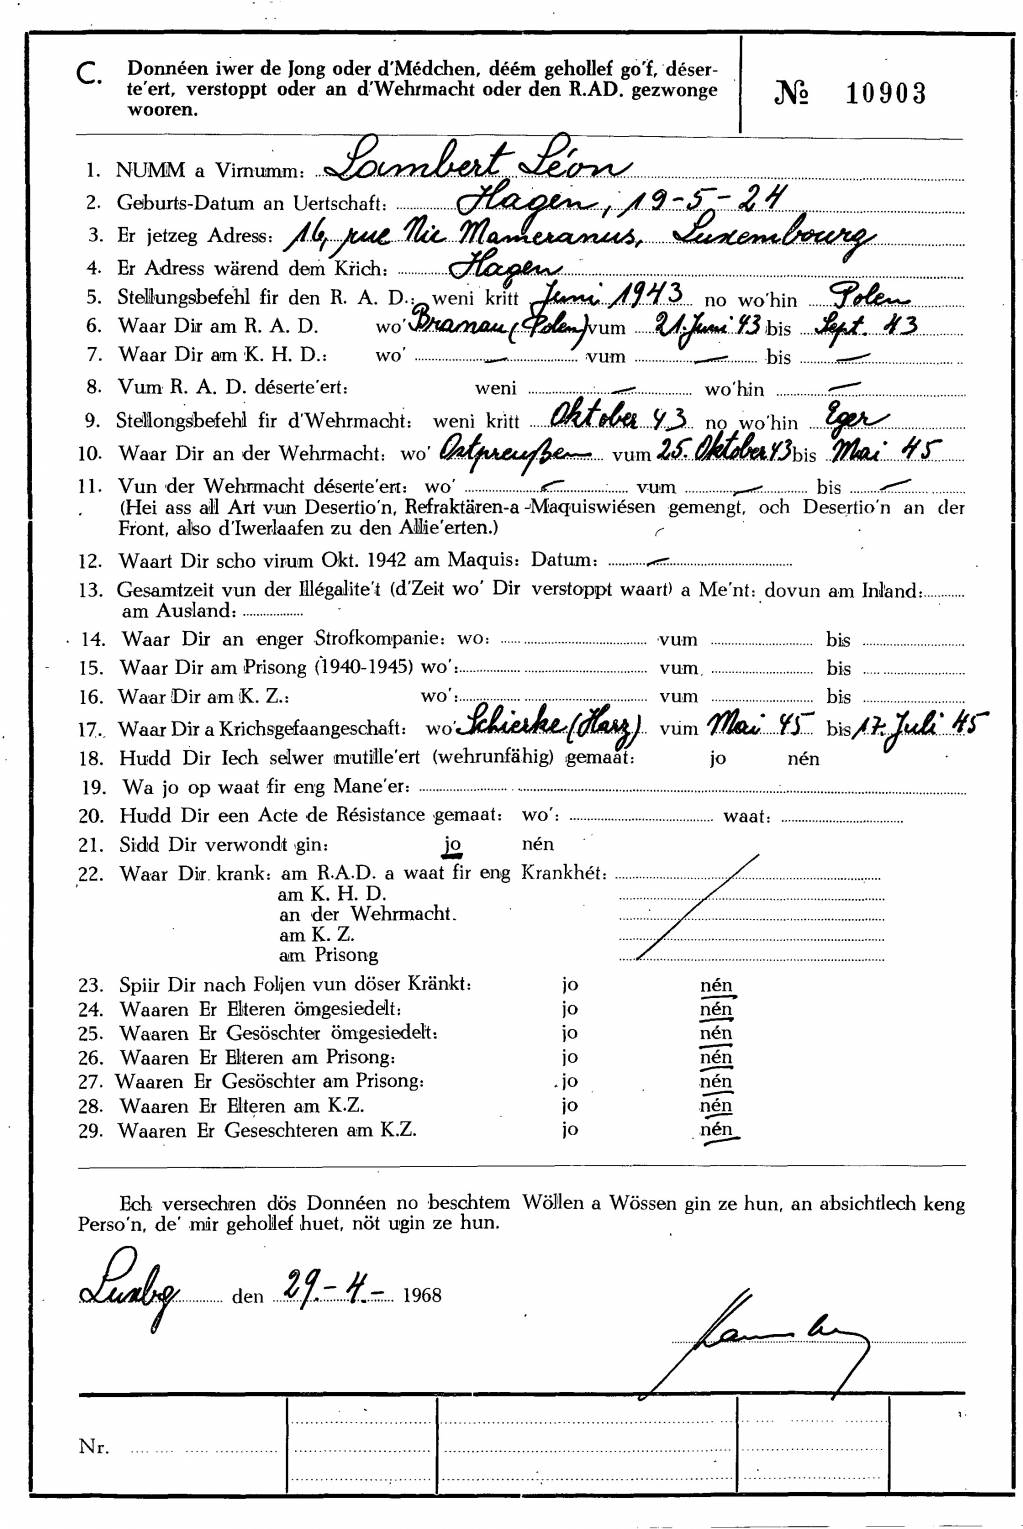 C. Donnéen iwer de Jong oder d'Médchen, déém gehollef go'f, déser-
te'ert, verstoppt oder an d'Wehrmacht oder den R.AD. gezwonge
wooren.
№ 10903
1. NUMM a Virnumm: Lambert Léon
2. Geburts-Datum an Uertschaft: Hagen, 19-5-24
3. Er jetzeg Adress: 16, rue Nic Mameranus, Luxembourg
4. Er Adress wärend dem Krich: Hagen
5. Stellungsbefehl fir den R. A. D.: weni kritt Juni 1943 no wo'hin Polen
6. Waar Dir am R. A. D. wo' Bramau (Polen) vum 21. Juni 43 bis Sept. 43
7. Waar Dir am K. H. D.: wo' — vum — bis —
8. Vum R. A. D. déserte'ert: weni — wo'hin —
9. Stellongsbefehl fir d'Wehrmacht: weni kritt Oktober 43 no wo'hin Eger
10. Waar Dir an der Wehrmacht: wo' Ostpreußen vum 25. Oktober 43 bis Mai 45
11. Vun der Wehrmacht déserte'ert: wo' — vum — bis —
(Hei ass all Art vun Desertio'n, Refraktären-a -Maquiswiésen gemengt, och Desertio'n an der
Front, also d'Iwerlaafen zu den Allie'erten.)
12. Waart Dir scho virum Okt. 1942 am Maquis: Datum: —
13. Gesamtzeit vun der Illégalite't (d'Zeit wo' Dir verstoppt waart) a Me'nt: dovun am Inland:
am Ausland:
14. Waar Dir an enger Strofkompanie: wo: vum bis
15. Waar Dir am Prisong (1940-1945) wo': vum bis
16. Waar Dir am K. Z.: wo': vum bis
17. Waar Dir a Krichsgefaangeschaft: wo' Schierke (Harz) vum Mai 45 bis 17. Juli 45
18. Hudd Dir Iech selwer mutille'ert (wehrunfähig) gemaat: jo nén
19. Wa jo op waat fir eng Mane'er:
20. Hudd Dir een Acte de Résistance gemaat: wo': waat:
21. Sidd Dir verwondt gin: jo nén
22. Waar Dir krank: am R.A.D. a waat fir eng Krankhét:
am K. H. D.
an der Wehrmacht.
am K. Z.
am Prisong
23. Spiir Dir nach Foljen vun döser Kränkt: jo nén
24. Waaren Er Elteren ömgesiedelt: jo nén
25. Waaren Er Gesöschter ömgesiedelt: jo nén
26. Waaren Er Elteren am Prisong: jo nén
27. Waaren Er Gesöschter am Prisong: jo nén
28. Waaren Er Elteren am K.Z. jo nén
29. Waaren Er Geseschteren am K.Z. jo nén
Ech versechren dös Donnéen no beschtem Wöllen a Wössen gin ze hun, an absichtlech keng
Perso'n, de' mir gehollef huet, nöt ugin ze hun.
Luxbg den 29.-4.- 1968
Nr.